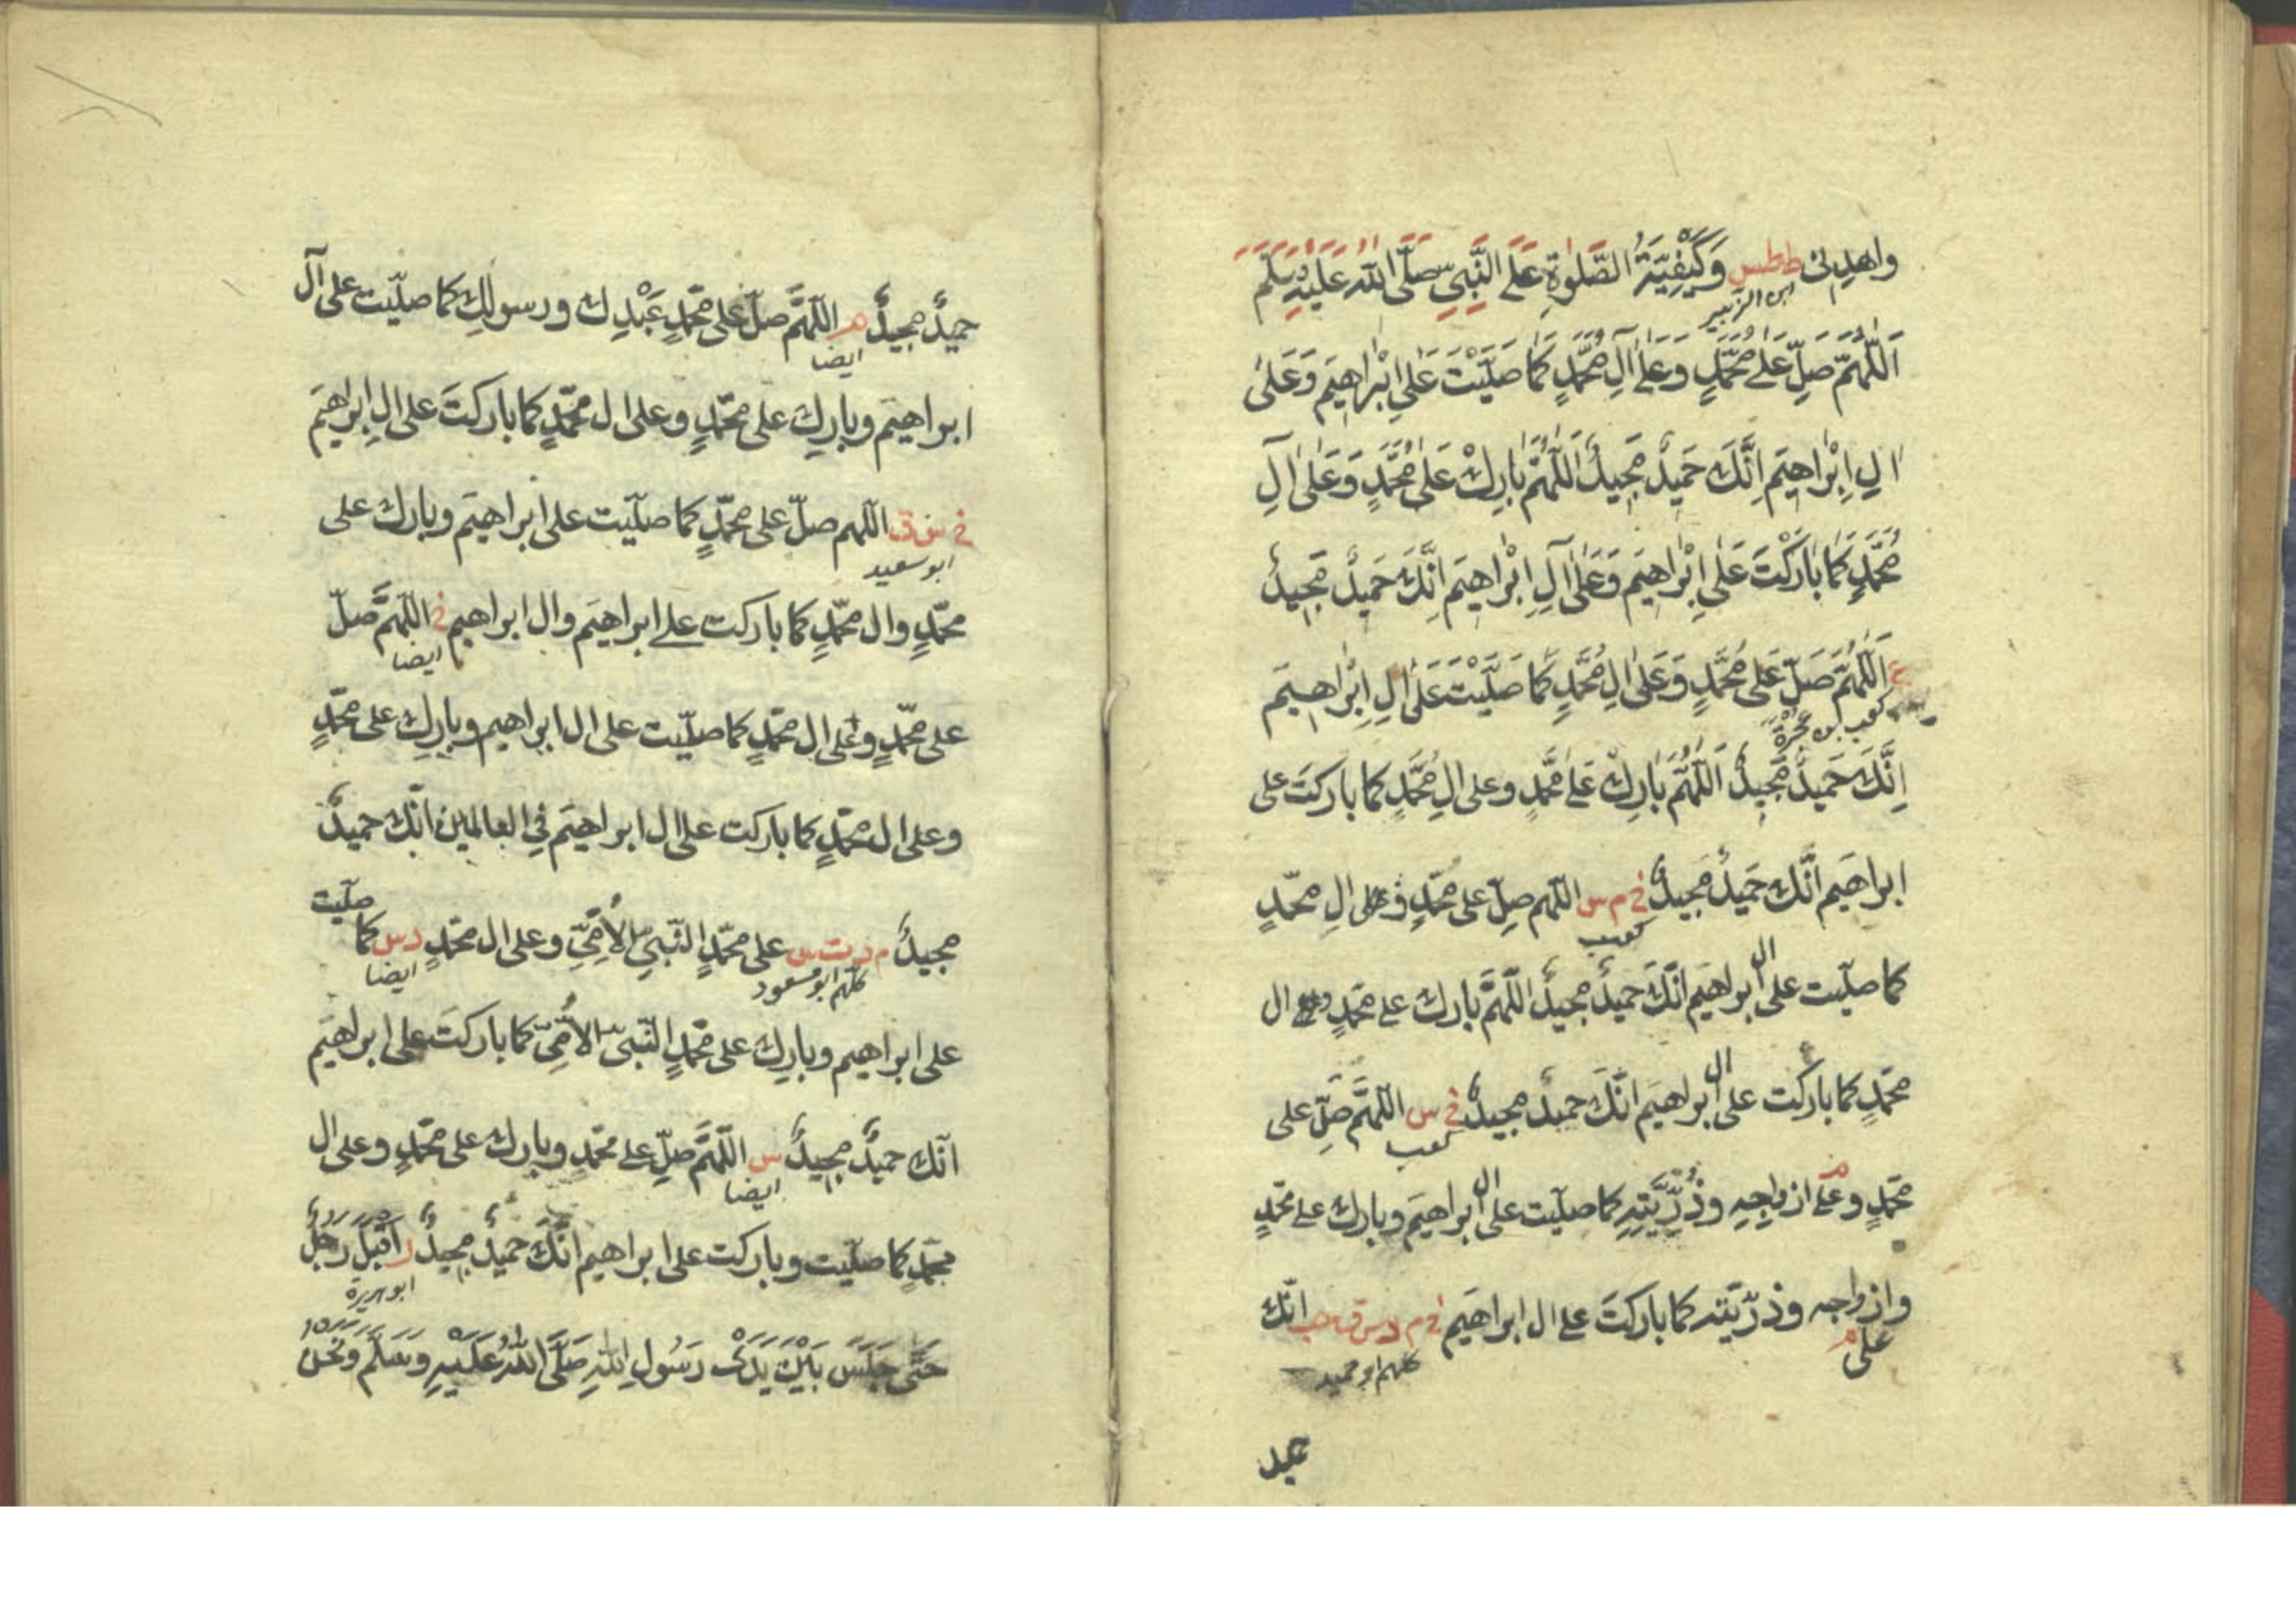 واهدنى ططس وَكَيْفِيَّةُ الصَّلٰوةِ عَلَى النَّبِيِّ صَلَّى اللّٰهُ عَلَيْهِ وَسَلَّمَ
ابن الزبير
اَللّٰهُمَّ صَلِّ عَلٰى مُحَمَّدٍ وَعَلٰى اٰلِ مُحَمَّدٍ كَمَا صَلَّيْتَ عَلٰى اِبْرَاهِيْمَ وَعَلٰى
اٰلِ اِبْرَاهِيْمَ اِنَّكَ حَمِيْدٌ مَجِيْدٌ اَللّٰهُمَّ بَارِكْ عَلٰى مُحَمَّدٍ وَعَلٰى اٰلِ
مُحَمَّدٍ كَمَا بَارَكْتَ عَلٰى اِبْرَاهِيْمَ وَعَلٰى اٰلِ اِبْرَاهِيْمَ اِنَّكَ حَمِيْدٌ مَجِيْدٌ
ع اَللّٰهُمَّ صَلِّ عَلٰى مُحَمَّدٍ وَعَلٰى اٰلِ مُحَمَّدٍ كَمَا صَلَّيْتَ عَلٰى اٰلِ اِبْرَاهِيْمَ
كعب بن عجرة
اِنَّكَ حَمِيْدٌ مَجِيْدٌ اَللّٰهُمَّ بَارِكْ عَلٰى مُحَمَّدٍ وعلى الِ مُحَمَّدٍ كما باركتَ على
ابراهيم انّك حَمِيدٌ مَجِيدٌ خ م س اللّهم صلِّ على محمّدٍ وعلى الِ محمّدٍ
كعب
كما صلّيت على ال ابراهيم انّكَ حميدٌ مجيدٌ اللّهمَّ بارك على محمّدٍ وعلى ال
محمّدٍ كما باركت على ال ابراهيمَ انّكَ حميدٌ مجيدٌ خ س اللّهمَّ صلِّ على
كعب
محمّدٍ وعلى م ازواجِهِ وذُرِّيَّتِهِ كما صلّيت على ال ابراهيمَ وبارك على محمّدٍ
وازواجه وذرّيّته كما باركتَ على ال ابراهيمَ خ م د س ق حب انّك
على م
كلهم ابو حميد
حميد
حميدٌ مجيدٌ اللّهمَّ صلّ على محمّدٍ عَبْدِك ورسولِك كما صلّيت على آل
ايضا
ابراهيمَ وبارِك على محمّدٍ وعلى ال محمّدٍ كما باركتَ على الِ ابراهيمَ
خ س ق اللّهم صلّ على محمّدٍ كما صلّيت على ابراهيمَ وبارك على
ابو سعيد
محمّدٍ وال محمّدٍ كما باركت على ابراهيمَ وال ابراهيم خ اللّهمَّ صلّ
ايضا
على محمّدٍ وعلى ال محمّدٍ كما صلّيت على ال ابراهيم وبارِك على محمّدٍ
وعلى ال محمّدٍ كما باركت على ال ابراهيمَ في العالمين انّك حميدٌ
مجيدٌ م د ت س على محمّدٍ النّبيّ الأُمّيِّ وعلى ال محمّدٍ د س كما صلّيت
كلهم ابو مسعود
ايضا
على ابراهيم وبارِك على محمّدٍ النّبيّ الأُمّيّ كما باركتَ على ابراهيمَ
انّك حميدٌ مجيدٌ س اللّهمَّ صلّ على محمّدٍ وبارك على محمّدٍ وعلى ال
ايضا
محمّدٍ كما صلّيت وباركت على ابراهيم انّكَ حميدٌ مجيدٌ ر اَقْبَلَ رَجُلٌ
ابو هريرة
حَتّٰى جَلَسَ بَيْنَ يَدَىْ رَسُولِ اللّٰهِ صَلَّى اللّٰهُ عَلَيْهِ وَسَلَّمَ وَنَحْنُ